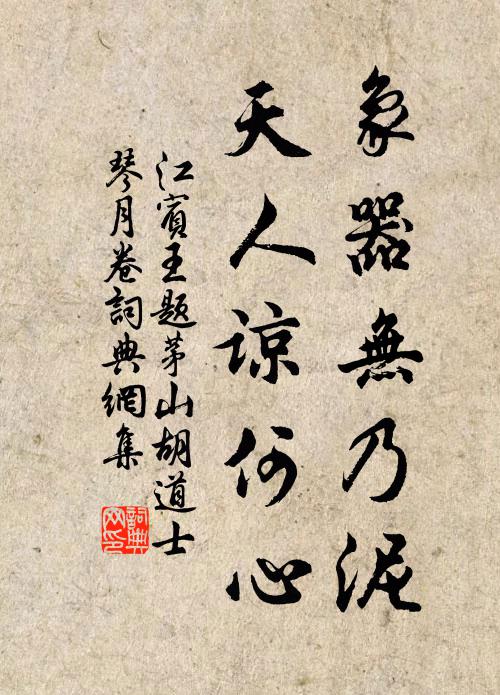 象器無乃泥
天人諒何心
江賓王題茅山胡道士
琴月卷詞典網集
詞典網印